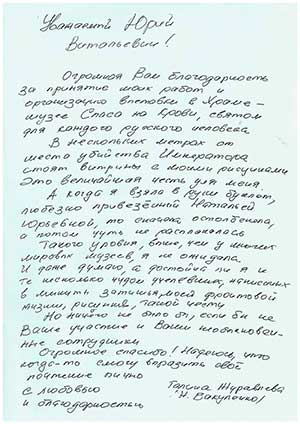 Уважаемый Юрий
Витальевич!
Огромная Вам благодарность
за принятие моих работ и
организацию выставки в Храме-
музее Спаса на Крови, святом
для каждого русского человека
В нескольких метрах от
места убийства Императора
стоят витрины с моими рисунками
Это величайшая честь для меня.
А когда я взяла в руки буклет,
любезно привезённый Натальей
Юрьевной, то сначала остолбенела,
а потом чуть не расплакалась
Такого уровня, выше, чем у многих
мировых музеев, я не ожидала.
И даже думаю, а достойна ли я и
те несколько чудом уцелевших, написанных
в минуты затишья, моей фронтовой
жизни, рисунков, такой чести
Но ничего не было бы, если бы не
Ваше участие и Ваши необыкновен-
ные сотрудники
Огромное спасибо! Надеюсь, что
когда-то смогу выразить своё
почтение лично
С любовью
и благодарностью
Галина Журавлева
/Н. Вакуленко/